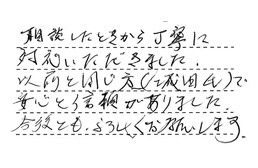 相談したときから丁寧に
対応いただきました。
以前と同じ方(成田氏)で
安心と信頼がありました。
今後とも、よろしくお願いします。